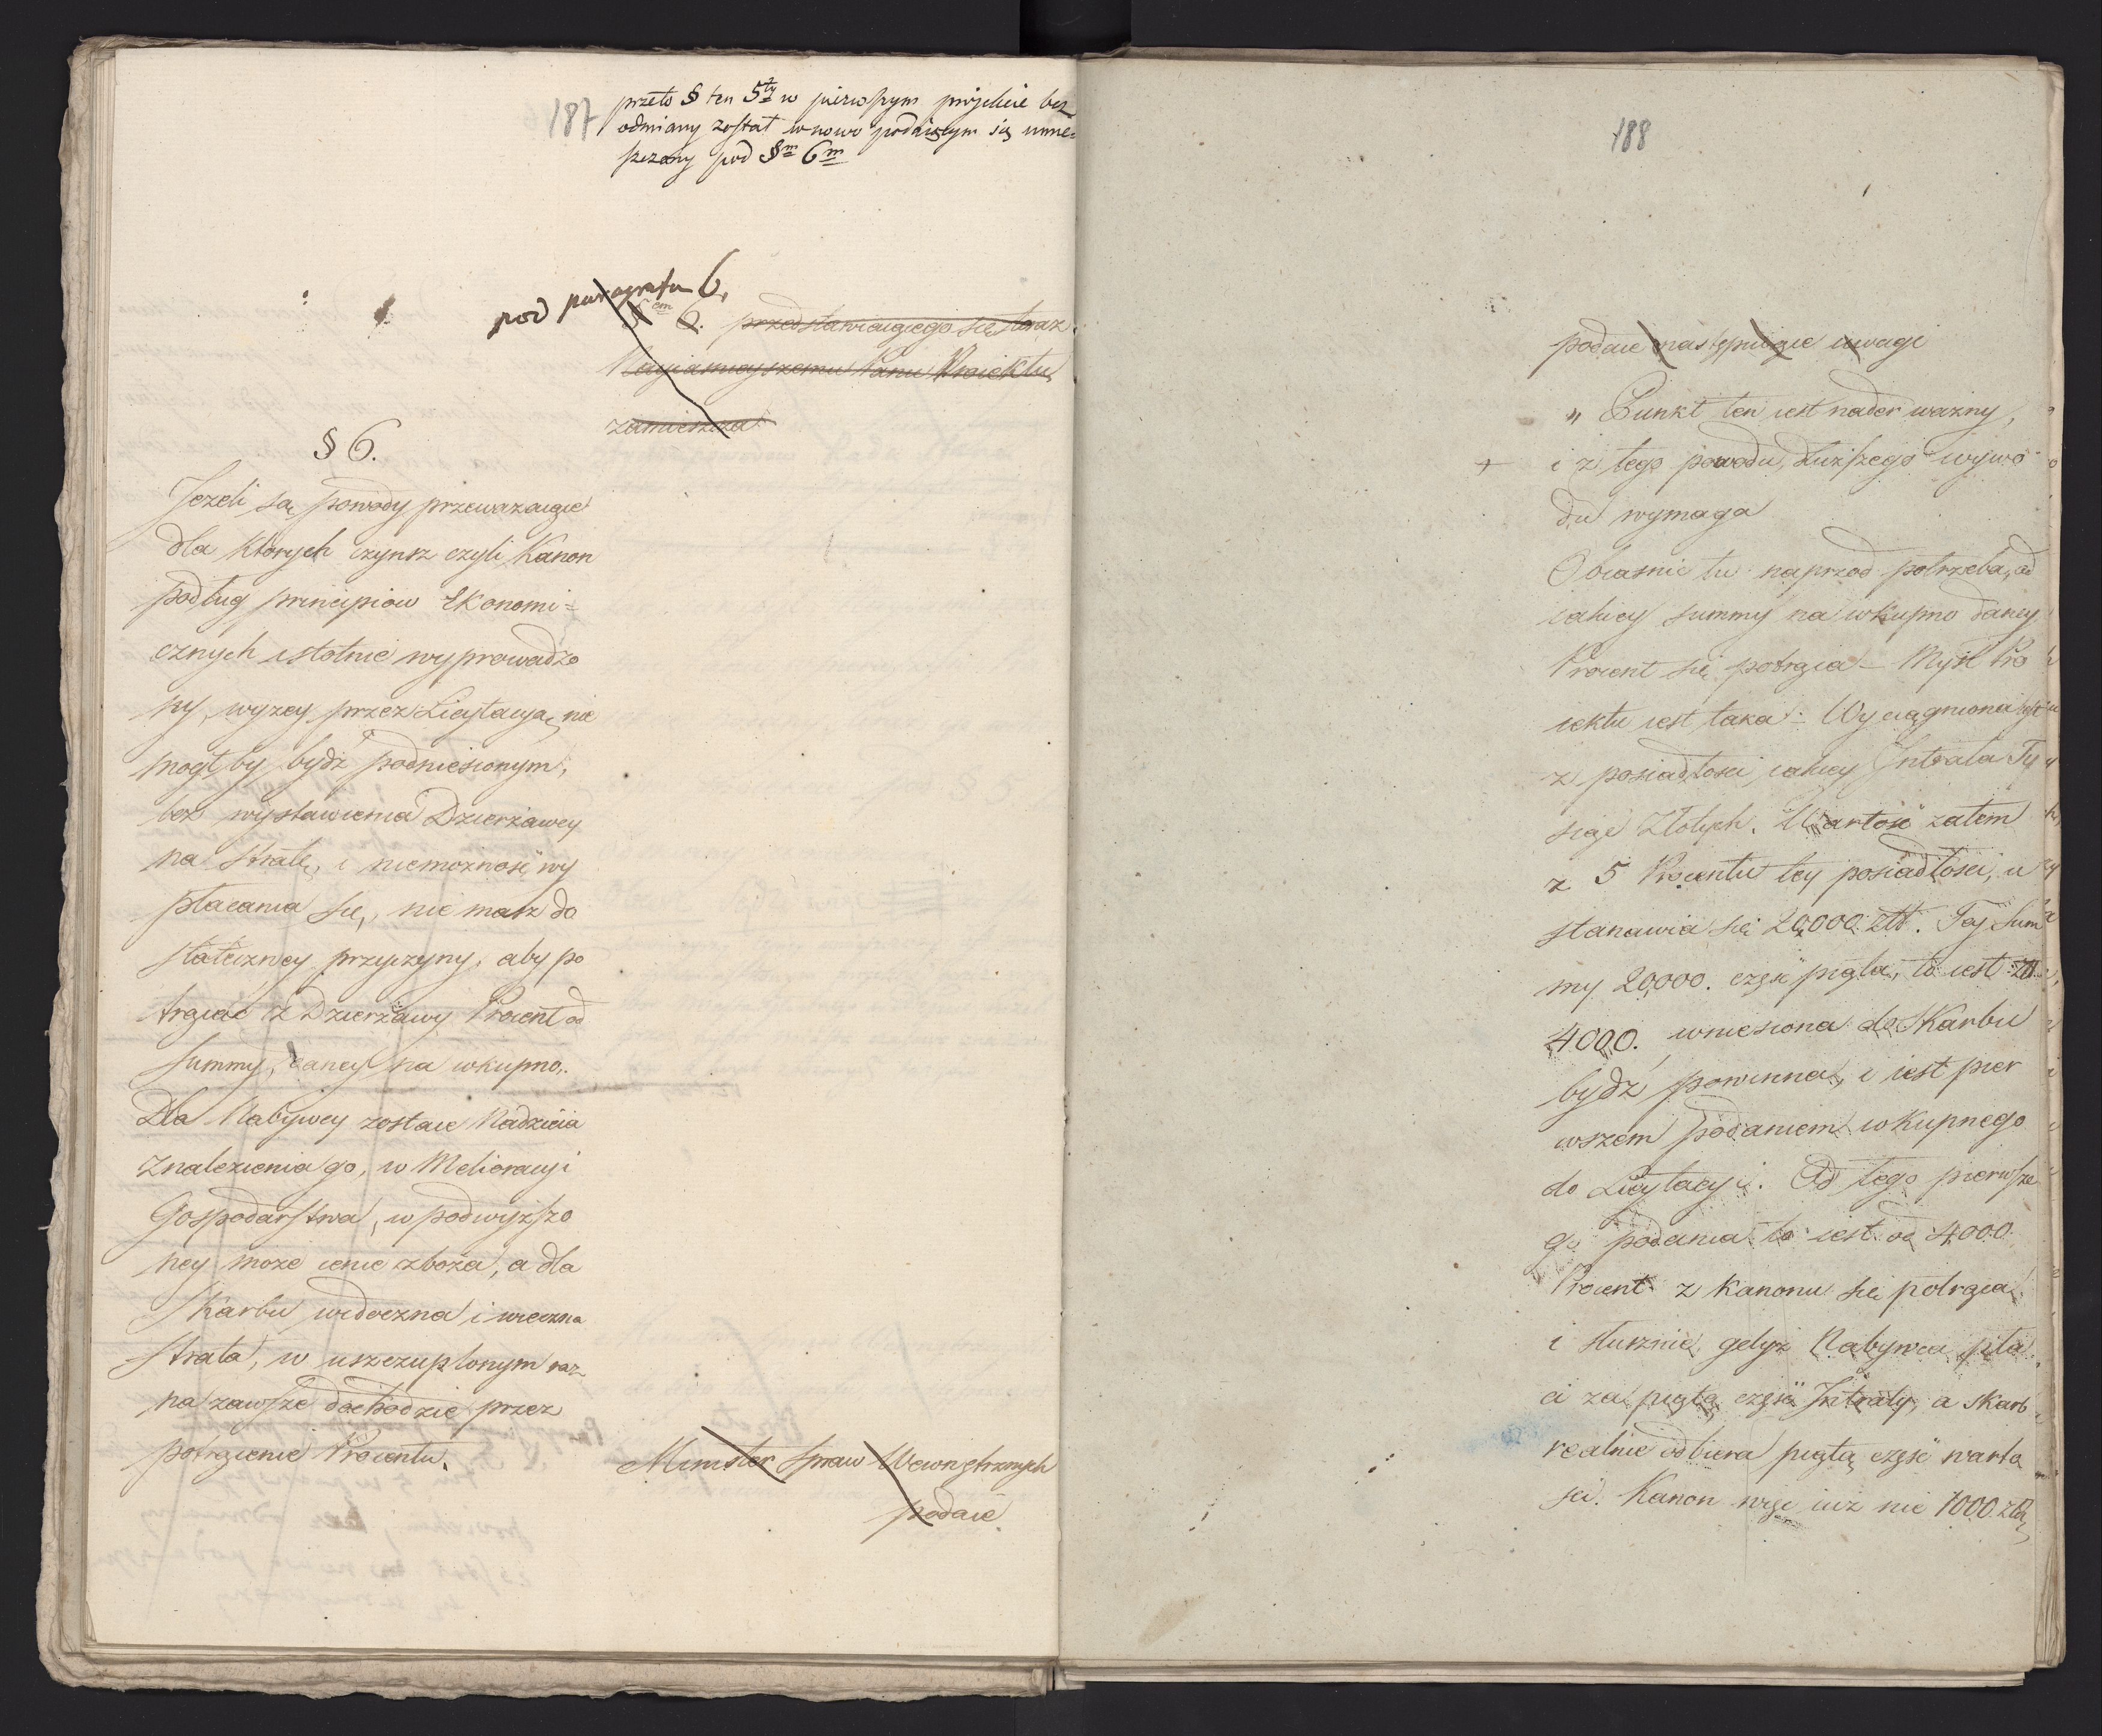 187
przeto § ten 5ty w pierwszym projekcie bez
odmiany został w nowo podaiącym się umie=
szczony pod §m 6m
pod paragrafem 6,
§em 6. przedstawiaiącego się teraz
Nayiaśnieyszemu Panu Proiektu
zamieszcza
§ 6.
Jezeli są powody przewazaiące
dla ktorych czynsz czyli Kanon
podług principiow Ekonomi=
cznych istotnie wyprowadzo
ny, wyzey przez Licytacyą, nie
mogłby bydź podniesionym,
bez wystawienia Dzierżawcy
na stratę, i niemożność wy
płacania się, nie masz do
stateczney przyczyny, aby po
trącać z Dzierżawy Procent od
summy, daney na wkupno.
Dla Nabywcy zostaie Nadzieia
znalezienia go, w Melioracyi
Gospodarstwa, w podwyższo
ney może cenie zboża, a dla
Skarbu widoczna i wieczna
strata, w uszczuplonym raz
na zawsze dochodzie przez
potrącenie Procentu.
Minister Spraw Wewnętrznych
podaie
188
podaie następuiące uwagi
„ Punkt ten iest nader ważny,
+ i z tego powodu, dłuższego wywo
du wymaga
Obiaśnić tu naprzod potrzeba, od
iakiey summy na wkupno daney
Procent się potrąca – Myśl Pro
iektu iest taka: Wyciągniona iest
z posiadłości iakiey Intrata Ty
siąc Złotych. Wartość zatem
z 5 Procentu tey posiadłości, u
stanawia się 20,000 złł. Tej Sum
my 20,000. część piąta, to iest zł.
4000. wniesiona do Skarbu
bydź powinna, i iest pier
wszem podaniem wkupnego
do Licytacyi. Od tego pierwsze
go podania to iest od 4000
Procent z Kanonu się potrąca
i słusznie, gdyż Nabywca pła
ci za piątą część Intraty, a Skarb
realnie odbiera piątą część warto
ści. Kanon więc iuż nie 1000 złł,